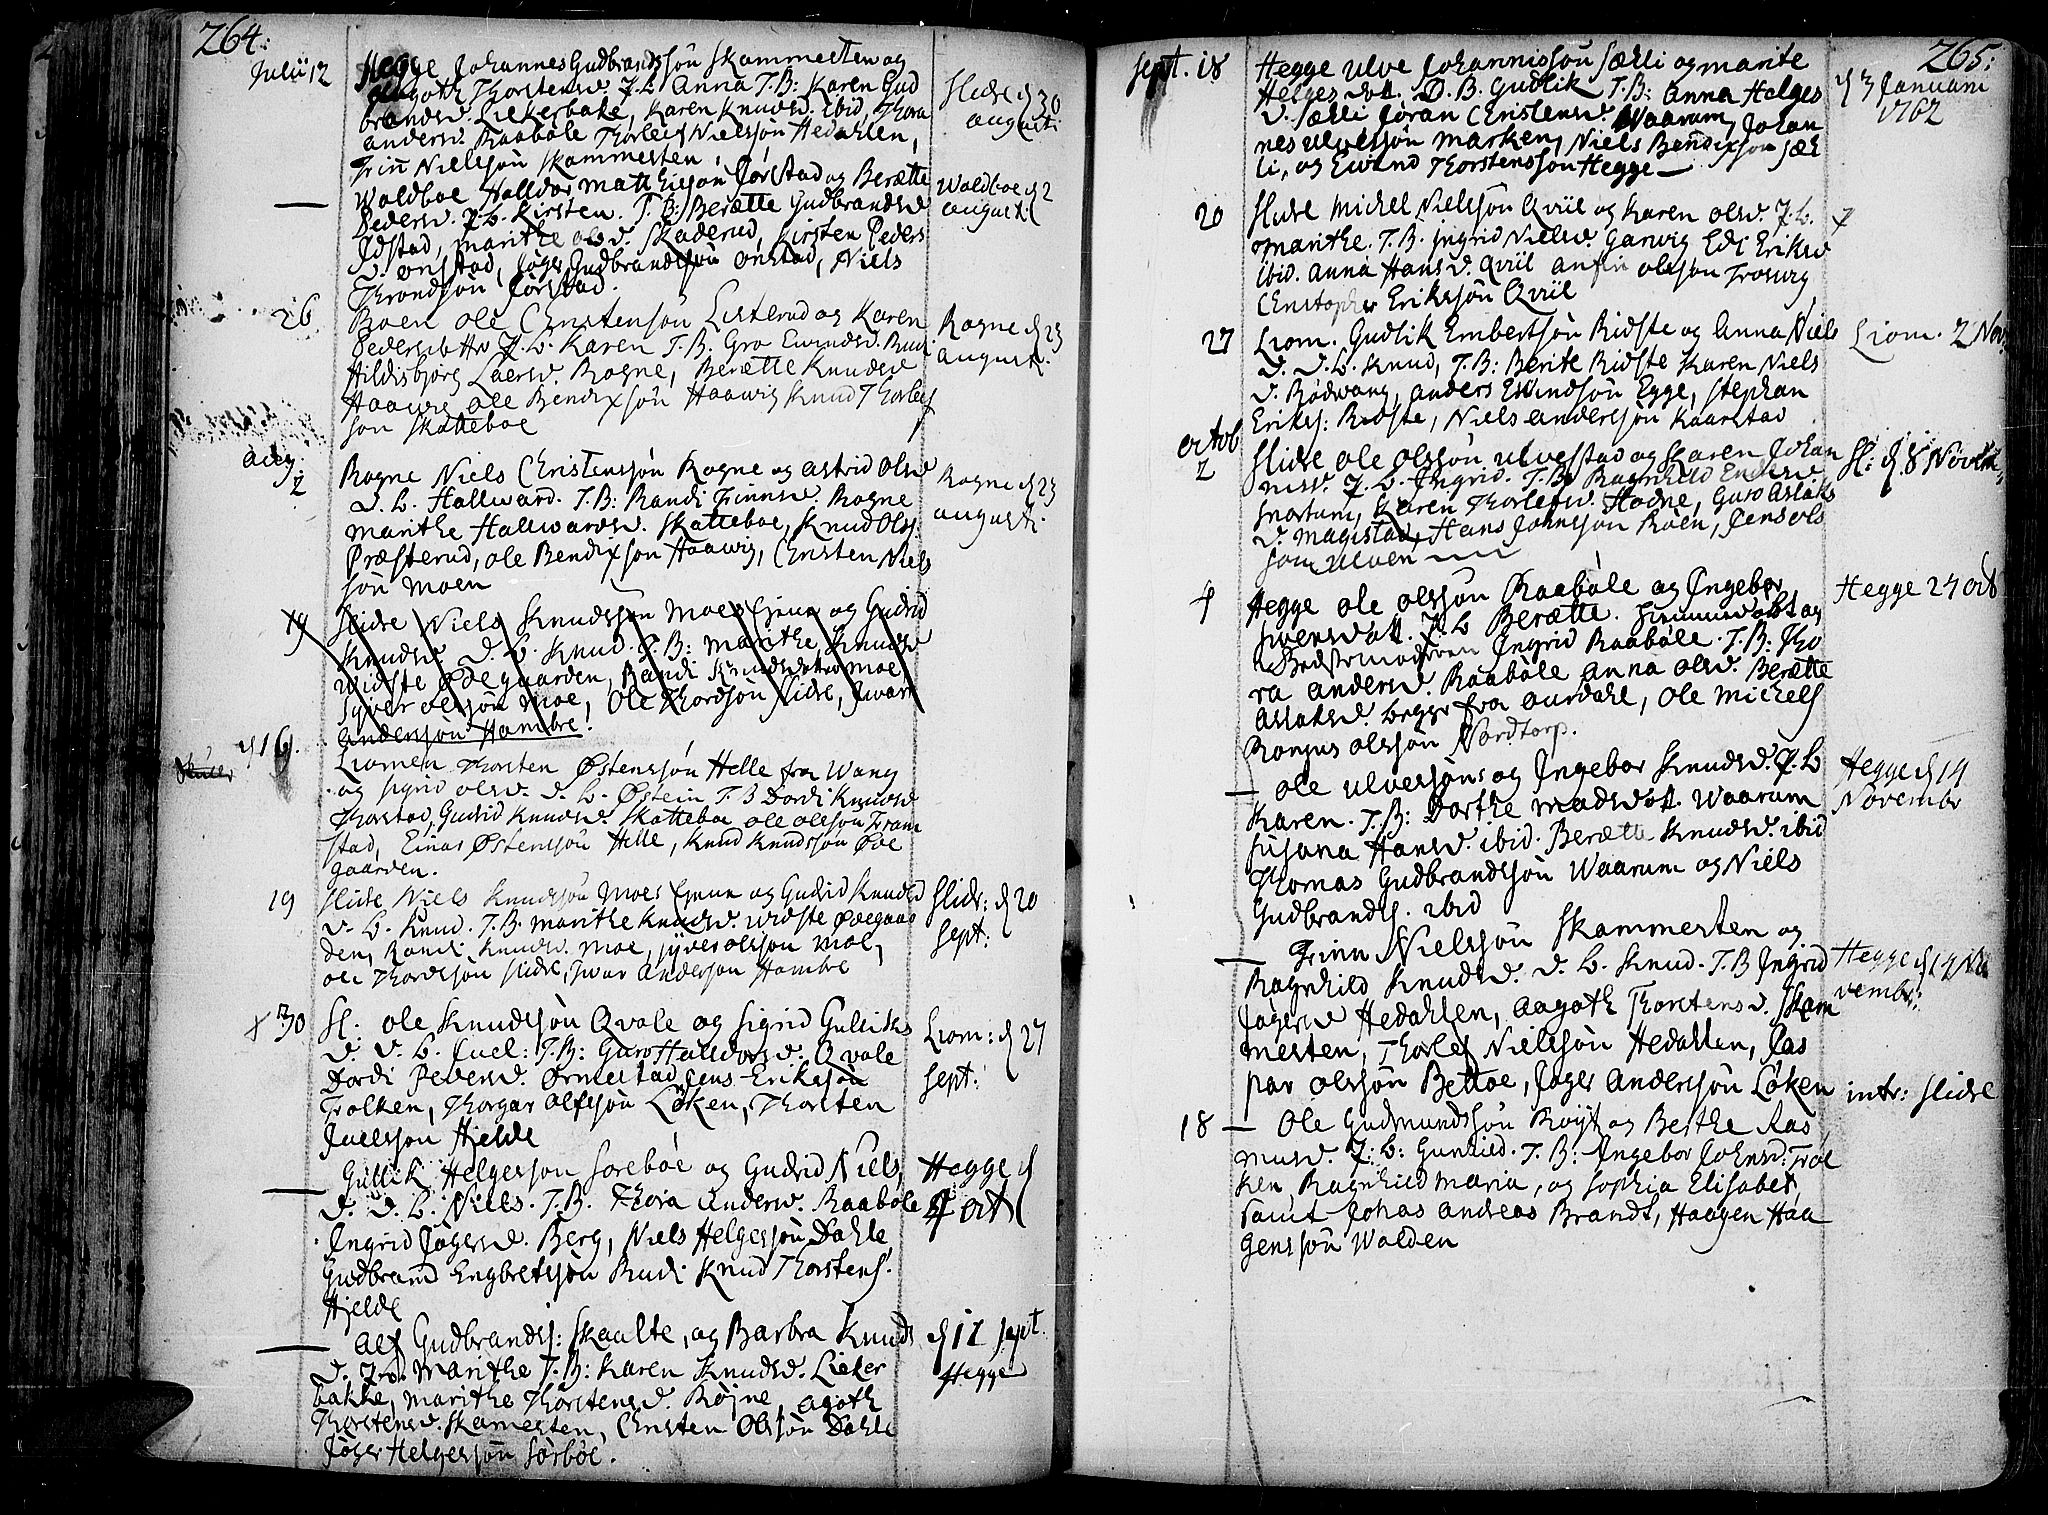 264:
Julii 12
Hegge Johannes Gudbrandssøn Skammesten og
Agoth Thorstensd. J. L. Anna T. B: Karen Gud
brandsd. Liekerbake, Karen Knudsd. ibid, Thora
andersd. Raabøle Thorleif Nielssøn Hedahlen,
Finn Nielssøn Skammesten,
Slidre d 30
augusti
— Waldboe Halldor Matthissøn Jørstad og Berætte
Pedersd. J. L. Kirsten. T. B: Berætte Gudbrandsd
Idstad, Marithe olsd. Skaderud, Kirsten Peders
d. onstad, Jøger Gudbrandssøn onstad, Niels
Throndssøn Jørstad.
Waldboe d 2
augusti
26
Roen Ole Christensøn Listerud og Karen
Pedersd. J. L. Karen T. B. Gro Ewindsd. Rudi
Hildisbjørg Laersd. Rogne, Berætte Knudsd
Haawig ole Bendixsøn Haawig Knud Thorleif
søn Skatteboe
Rogne d 23
augusti.
aug.
2
Rogne Niels Christenssøn Rogne og astrid olsd
D. L. Hallward. T. B: Randi Finnsd. Rogne
Marithe Hallwardsd. Skatteboe, Knud Olss.
Præsterud, ole Bendixsøn Haawig, Christen Niels
søn Moen
Rogne d 23
augusti.
19
Slidre Niels Knudssøn Moes Ejeun og Gudrid
Knudsd. D. L. Knud. T. B: Marithe Knudsd
widste Ødegaarden, Randi Knudsd. Moe
Syver olssøn Moe, Ole Thordsøn Slidre, Iwar
Anderssøn Hambre.
d 16.
Liomen Thorsten Østenssøn Helle fra Wang
og Sigrid olsd. D. L. Østein T. B Dordi Knudsd
Thorstad, Gudrid Knudsd. Skatteboe ole olssøn Fram
stad, Einar Østenssøn Helle, Knud Knudssøn Øde
gaarden.
19
Slidre Niels Knudssøn Moes Ejeun og Gudrid Knudsd
D. L. Knud. T. B. Marithe Knudsd. widste Ødegaar
den, Randi Knudsd. Moe, Syver olssøn Moe,
ole Thordssøn Slidre, Iwar Andersøn Hambre
Slidr: d 20
Sept:
+ 30
Sl: ole Knudssøn Qvale og Sigrid Gulliks
D. D. L. Juel: T. B: Guro Halldorsd. Qvale
Dordi Pedersd. Ormestad, Jens Erikssøn
Trolken, Thorgar Olfssøn Løken, Thorsten
Juelssøn Hjelde
Liom: d 27
Sept:
— Gullik Helgessøn Sørebøe og Gudrid Niels
D. D. L. Niels. T. B. Thora Andersd. Raabøle
Ingrid Jøgersd. Berg, Niels Helgessøn Dahle,
Gudbrand Engbretssøn Rudi Knud Thorstens.
Hjelde
Hegge d
4 oct
— Alf Gudbrands: Skaalte, og Barbra Knuds
D. J. L. Marithe T. B: Karen Knudsd. Lieker
bakke, Marithe Thorstensd. Røjne, agoth
Thorstensd. Skamesten, Christen Olssøn Dahle
Jøger Helgessøn Sørbøe.
d 11 Sept.
Hegge
265:
Sept. 18
Hegge Ulve Johannissøn Sæhli og Marite
Helges dott. D. B. Gudlik T. B: Anna Helges
d. Sæhli Jøran Christensd. Waarum, Johan
nes Ulvessøn Marken, Niels Bendixsøn Sæh
li, og Ewind Thorstenssøn Hegge —
d 3 Januarii
1762
20
Slidre Michel Nielssøn Qviil og Karen olsd. J. L.
Marithe. T. B. Ingrid Nielsd. Garwig Edi Eriksd
ibid. Anna Hansd. Qviil anfin olssøn Froswig
Christopher Erikssøn Qviil
27
Liom. Gudlik Embertsøn Ridste og Anna Niels
D. D. L. Knud, T. B: Berite Ridste Karen Niels
D. Rødwang, anders Ewindsøn Egge, Stephan
Eriks: Ridste, Niels anderssøn Kaarstad
Liom. 2 Nov.
octob
2
Slidre ole olssøn ulvestad og Karen Johan
nisd. J. L. Ingrid. T. B. Ragnhild Endersd
Snortum, Karen Thorlefsd. Hodne, Guro Aslaks
D. Magistad, Hans Johnssøn Røen, Jens ols
søn Ulven
Sl: d. 8 Novem,
4
Hegge ole olssøn Raabøle og Ingebor
Swensdott. J. L Berætte.
Ingrid Raabøle. T. B: Tho
ra andersd. Raabøle Anna olsd. Berætte
Aslaksd. begge fra Aurdahl, Ole Michels
Rongus olssøn Nordtorp.
Hegge 24 oct
— Ole Ulverssøns og Ingebor Knudsd. J. L
Karen. T. B: Dorthe Madsdot. Waarum
Susana Hansd. ibid. Berætte Knudsd. ibid
Thomas Gudbrandssøn Waarum og Niels
Gudbrands. ibid
Hegge d 14
Novembr
— Finn Nielssøn Skammesten og
Ragnhild Knudsd. D. L. Knud. T. B Ingrid
Jøgersd Hedahlen, Aagoth Thorstensd. Skam
mesten, Thorlef Nielssøn Hedahlen, Jas
par olssøn Bettoe, Jøger Anderssøn Løken
Hegge d 14 No
vembr:
18 — Ole Gudmundssøn Røyt og Berthe Ras
musd. J. L: Gunild. T. B: Ingebor Johnsd: Trol
ken, Ragnhild Maria, og Sophia Elisabet,
samt Johas Andreas Brandt, Haagen Haa
genssøn Wolden
intr: Slidre